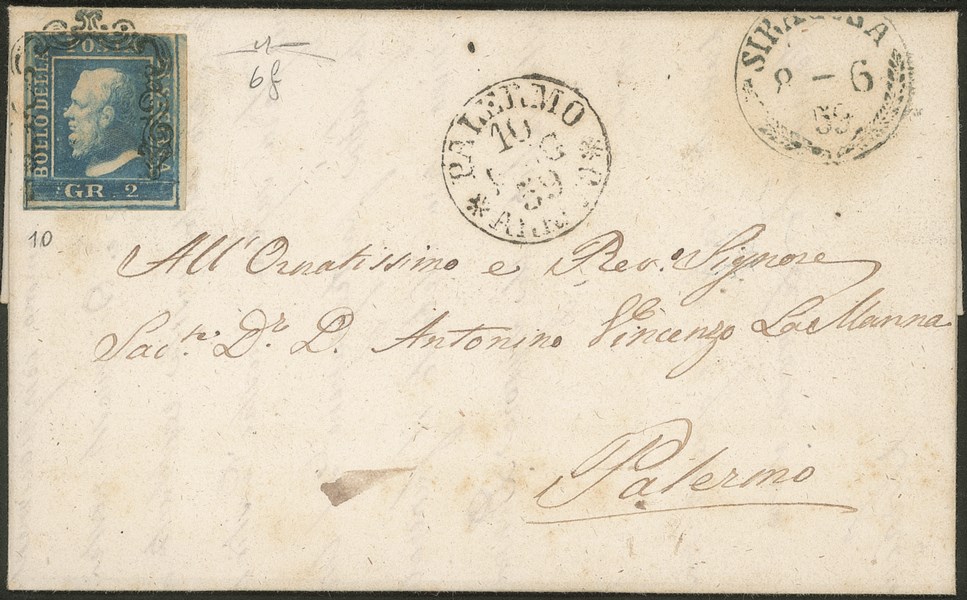 BOLLO DELLA
GR. 2
6
10
PALERMO
10
59
* ARR
SIRACUSA
8 - 6
59
All' Ornatissimo e Rev.o Signore
Sac.te D.r D. Antonino Vincenzo La Manna
Palermo